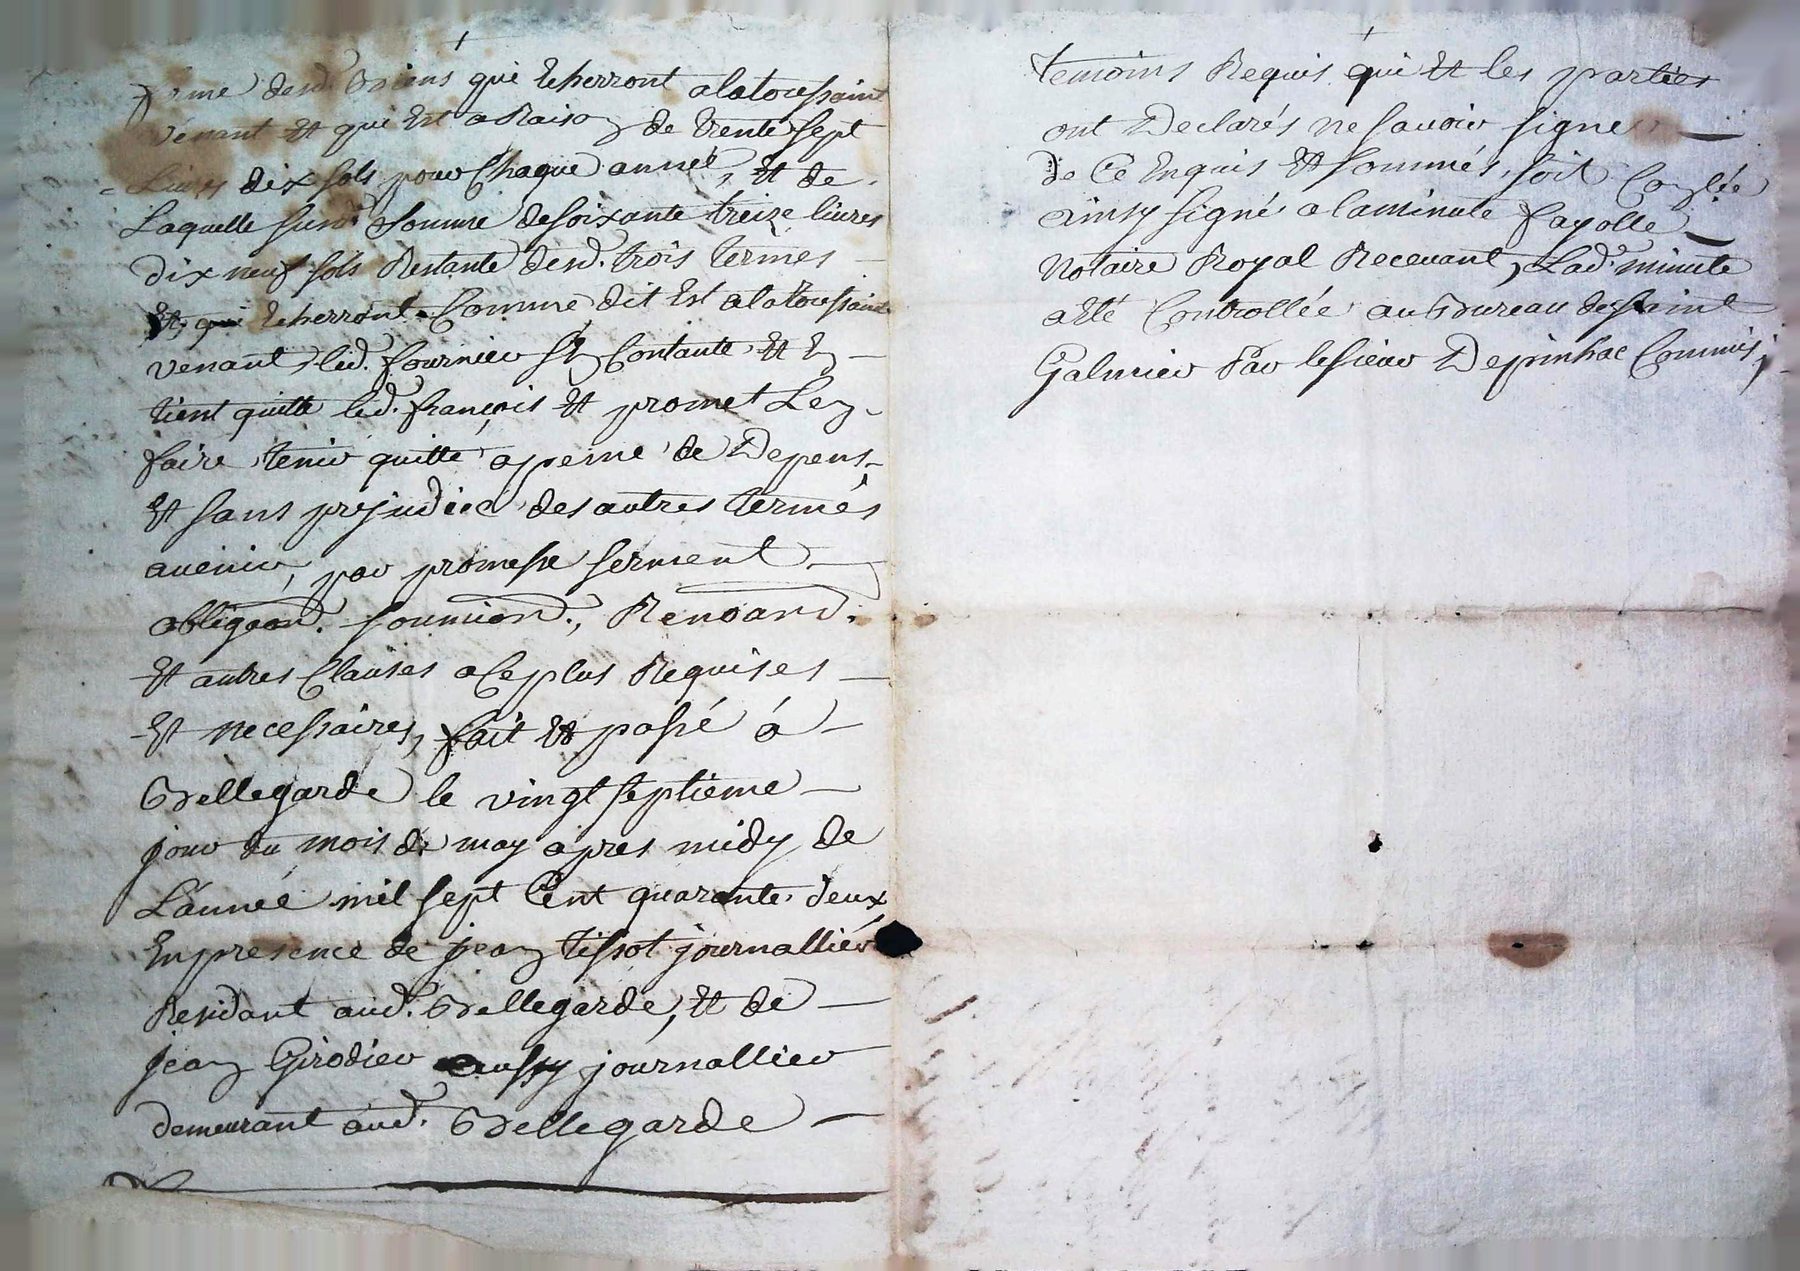 ferme desd. Biens qui Echerront alatoussaint
venant Et qui Est a Raison de trente sept
Livres dix sols pour Chaque année, Et de
Laquelle susd. Somme desoixante treize livres
dix neuf sols Restante desd. trois termes
Et qui Echerront Comme dit Est alatoussaint
venant, led. fournier sen Contante Et En
tient quitte led. françois Et promet Len
faire tenir quitte apeine de Depens
Et sans prejudice des autres termes
avenir, par promesse serment
obligaon. soumion., Renoaon.
Et autres Clauses aCeplus Requises
Et necessaires, fait Et passé á
Bellegarde le vingt septieme
jour du mois de may apres midy de
L'année mil sept Cent quarante deux
En presence de jean tissot journallier
Residant aud. Bellegarde, Et de
jean Girodier aussy journallier
demeurant aud. Bellegarde
temoins Requis qui Et les parties
ont Declarés ne savoir signer
de Ce Enquis Et sommés, soit Conlée
ainsy signé alaminute fayolle
Notaire Royal Recevant, Lad. minute
aEté Controllée auBureau desaint
Galmier Par lesieur Depinhac Commis;